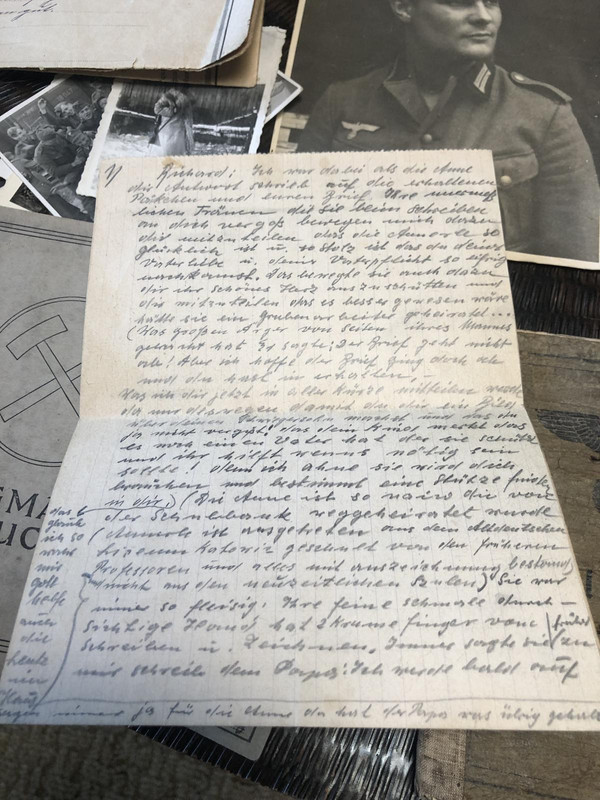 1/ Richard: Ich war dabei als die Anne
die Antwort schrieb auf die erhaltenen
Päckchen und euren Brief. Ihre
Tränen die sie beim schreiben
an dich vergoß bewegen mich dazu
dir mitzuteilen das die Annerle so
glücklich ist u. so stolz ist das du deine
Vaterliebe u. deine Vaterpflicht so eifrig
nachkomst. Das bewegte sie auch dazu
dir ihr schönes Herz auszuschütten und
dir mitzuteilen das es besser gewesen wäre
hätte sie ein Grubenarbeiter geheiratet...
(Was großen Ärger von seiten ihres Mannes
gebracht hat Er sagte: Der Brief geht nicht
ab! Aber ich hoffe der Brief ging doch ab
und du hast in erhalten,-
Was ich dir jetzt in aller Kürze mitteilen werde
da nur deswegen damit du dir ein Bild
über deinen machst und das du
ja nicht vergißt das dein Kind merkt das
es noch einen Vater hat der sie schützt
und ihr hilft wenns nötig sein
sollte! denn ich ahne sie wird dich
brauchen und bestimmt eine Stütze finden
in dir,) (Die Anne ist so naiv die von
der Schulbank weggeheiratet wurde
(Annerle ist ausgetreten aus dem Altdeutschen
in Katowiz geschult von den früheren
Professoren und alles mit auszeichnung bestand
(nicht aus den neuzeitlichen Schulen) Sie war
immer so fleisig! Ihre feine schmale durch-
sichtige Hand hat 2 krume finger vom
schreiben u. Zeichnen. Immer sagte sie zu
mir schreib dem Papa: Ich werde bald auf
früher
das
ich so
mir
gott
helfe
auch
die
heute
im
Haus
immer ja für die Anne da hat der Papa was übrig
GMA
UC